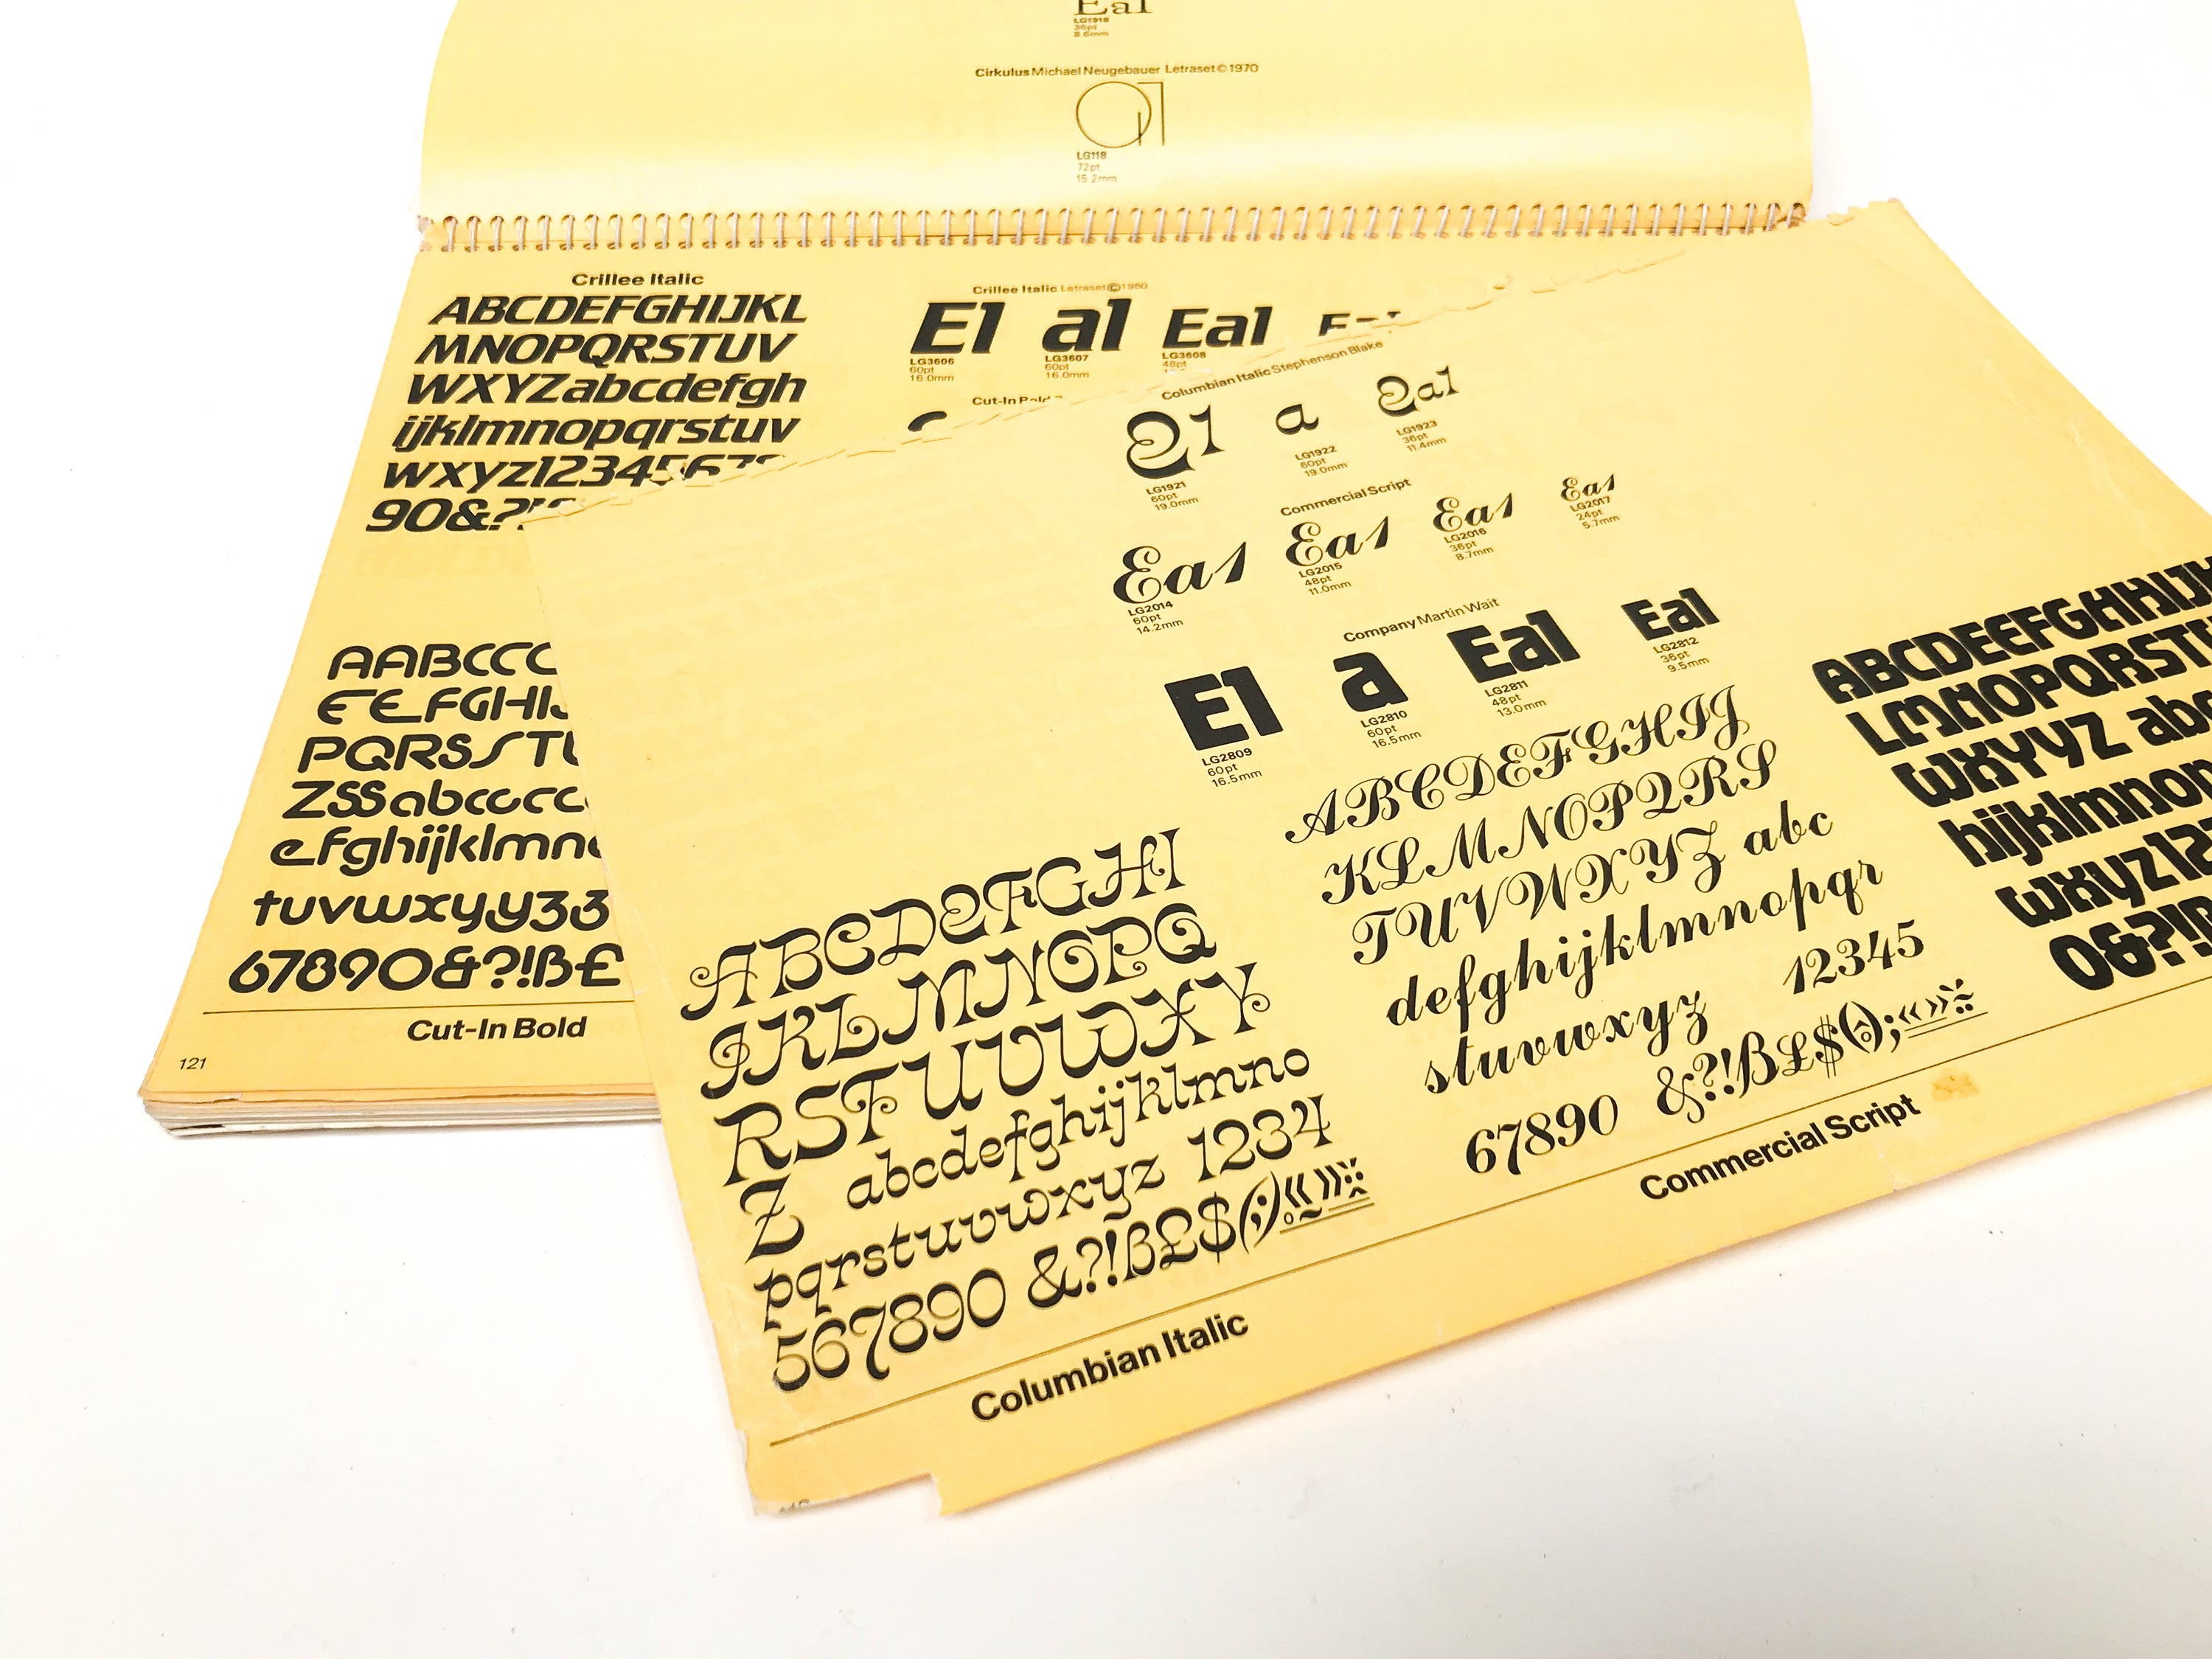 Ea1
LG1918
36pt
8.6mm
Cirkulus Michael Neugebauer Letraset©1970
a1
LG118
72pt
15.2mm
Crillee Italic
ABCDEFGHIJKL
MNOPQRSTUV
WXYZabcdefgh
ijklmnopqrstuv
wxyz12345678
90&?!
Crillee Italic Letraset©1980
E1 a1 Ea1
LG3606
60pt
16.0mm
LG3607
60pt
16.0mm
LG3608
48pt
Cut-In Bold
AABCCC
EEFGHIJ
PQRSSTU
ZSSabcccc
efghijklmn
tuvwxyyz33
67890&?!ß£
Cut-In Bold
121
Columbian Italic Stephenson Blake
E1 a Ea1
LG1921
60pt
19.0mm
LG1922
60pt
19.0mm
LG1923
36pt
11.4mm
Commercial Script
Ea1 Ea1 Ea1 Ea1
LG2014
60pt
14.2mm
LG2015
48pt
11.0mm
LG2016
36pt
8.7mm
LG2017
24pt
5.7mm
Company Martin Wait
E1 a Ea1 Ea1
LG2809
60pt
16.5mm
LG2810
60pt
16.5mm
LG2811
48pt
13.0mm
LG2812
36pt
9.5mm
ABCDEFGHI
JKLMNOPQ
RSTUVWXY
Z abcdefghijklmno
pqrstuvwxyz 1234
567890 &?!ß£$(;)«»
Columbian Italic
ABCDEFGHIJ
KLMNOPQRS
TUVWXYZ abc
defghijklmnopqr
stuvwxyz 12345
67890 &?!ß£$();«»
Commercial Script
ABCDEEFGHHIJK
LMNOPQRSTU
WXYYZ abc
hijklmnop
wxyz12
0&?!ß